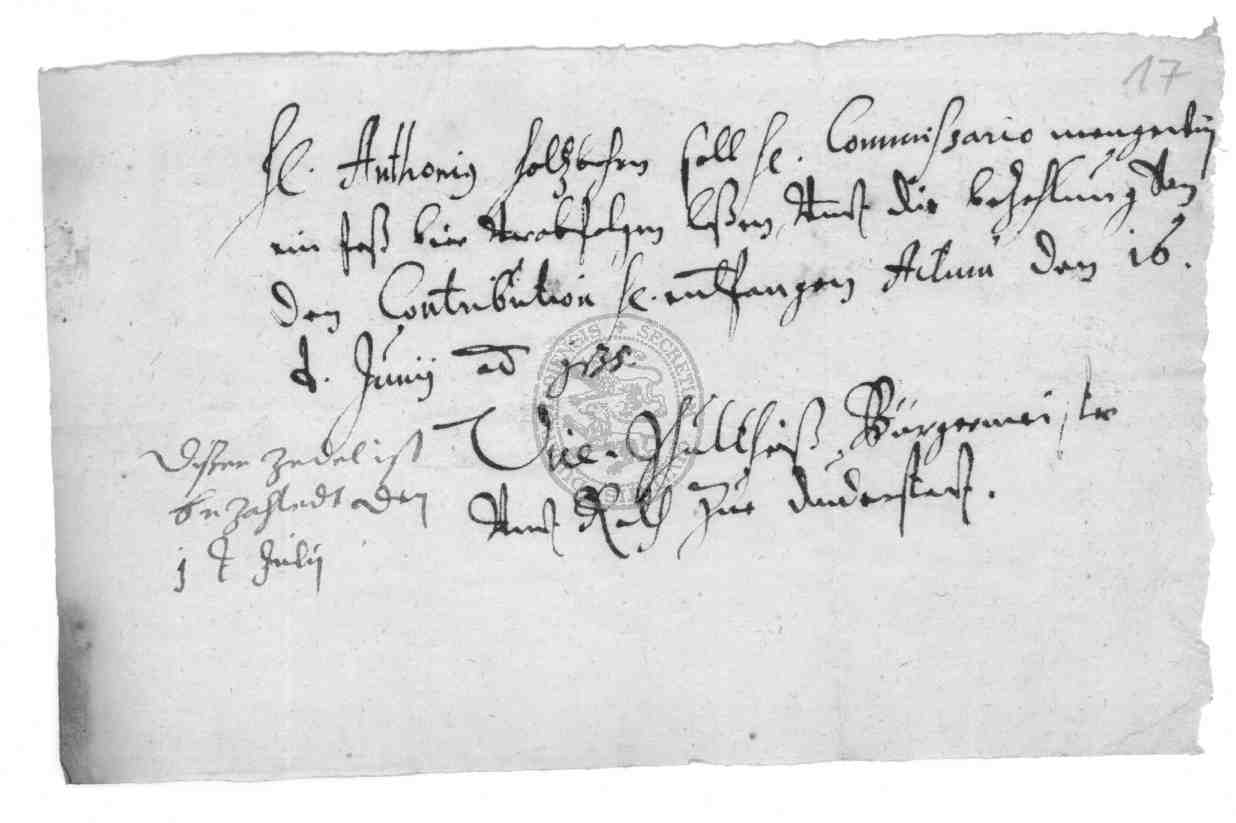 17
H. Anthonig holtzborn soll H. Commissario mengershuß
ein faß bier verabfolgen laßen, Und die bezahlung von
den Contribution H. entfangen Actum den 16.
t. Junij ao 1635.
Schultheiß Bürgermeister
Und Rath zue Duderstadt.
Disser zedel ist
bezahledt den
1 t Julij
SECRET